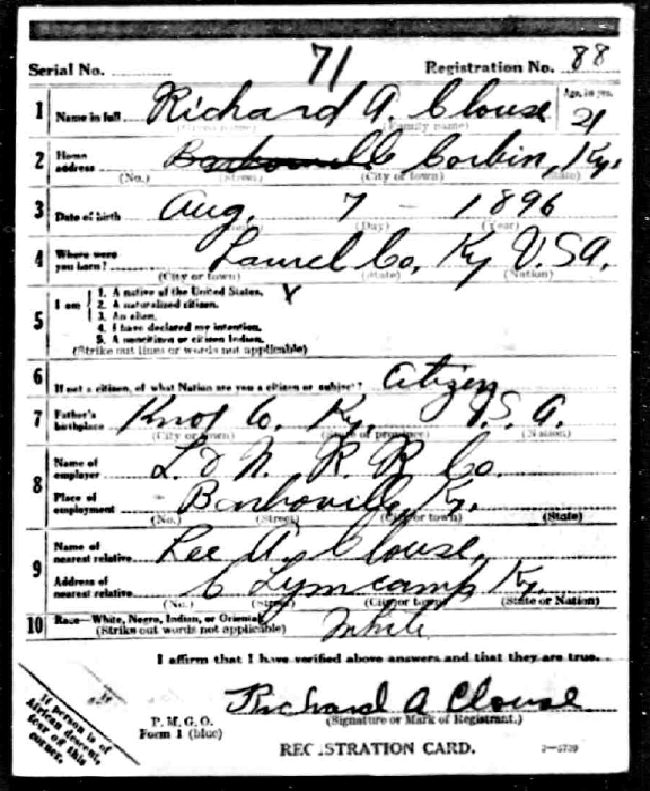 Serial No. 71 Registration No. 88
1 Name in full Richard A. Clouse Age, in yrs. 21
(Given name) (Family name)
2 Home address Barbourville Corbin, Ky.
(No.) (Street) (City or town) (State)
3 Date of birth Aug. 7 - 1896
(Month) (Day) (Year)
4 Where were you born? Laurel Co, Ky U.S.A.
(City or town) (State) (Nation)
5 I am
1. A native of the United States, X
2. A naturalized citizen,
3. An alien,
4. I have declared my intention,
5. A noncitizen or citizen Indian.
(Strike out lines or words not applicable)
6 If not a citizen, of what Nation are you a citizen or subject? Citizen
7 Father's birthplace Knox Co. Ky. U.S.A.
(City or town) (State or province) (Nation)
8 Name of employer L. & N. R. R. Co.
Place of employment Barboville, Ky.
(No.) (Street) (City or town) (State)
9 Name of nearest relative Lee A. Clouse,
Address of nearest relative Lynncamp Ky.
(No.) (Street) (City or town) (State or Nation)
10 Race—White, Negro, Indian, or Oriental
(Strike out words not applicable) White
I affirm that I have verified above answers and that they are true.
Richard A Clouse
P. M. G. O. (Signature or Mark of Registrant.)
Form 1 (blue)
REGISTRATION CARD.
If person is of
African descent,
tear off this
corner.